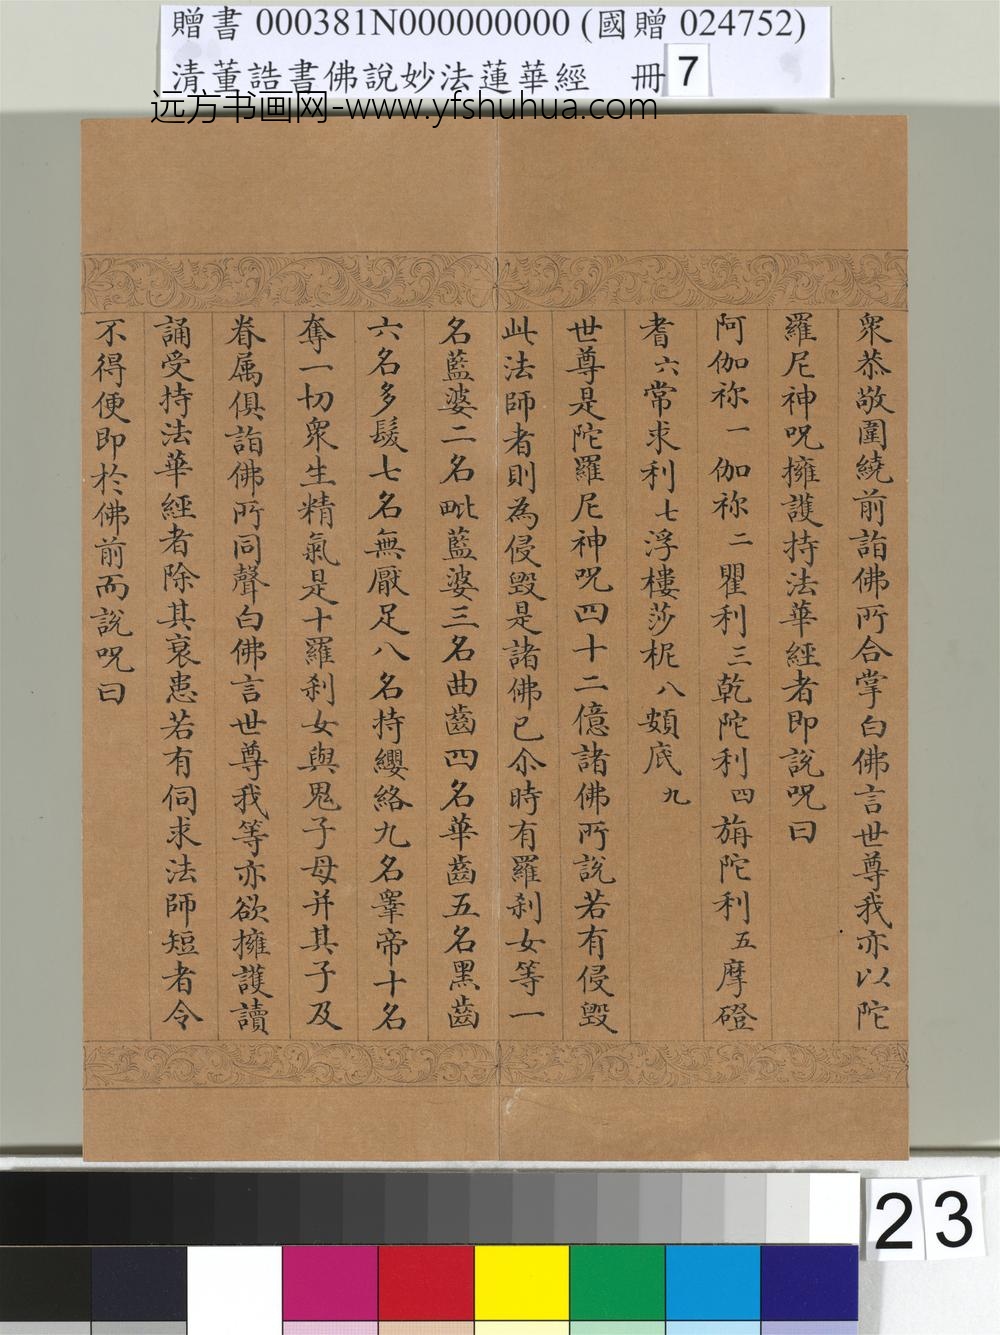 贈書 000381N000000000 (國贈 024752)
清董誥書佛說妙法蓮華經 冊 7
远方书画网-www.yfshuhua.com
衆恭敬圍繞前詣佛所合掌白佛言世尊我亦以陀
羅尼神呪擁護持法華經者即說呪曰
阿伽祢一伽祢二瞿利三乾陀利四旃陀利五摩磴
耆六常求利七浮樓莎柅八頞底九
世尊是陀羅尼神呪四十二億諸佛所說若有侵毀
此法師者則為侵毀是諸佛已尒時有羅刹女等一
名藍婆二名毗藍婆三名曲齒四名華齒五名黑齒
六名多髮七名無厭足八名持纓絡九名睪帝十名
奪一切衆生精氣是十羅刹女與鬼子母并其子及
眷属俱詣佛所同聲白佛言世尊我等亦欲擁護讀
誦受持法華經者除其衰患若有伺求法師短者令
不得便即於佛前而說呪曰
23